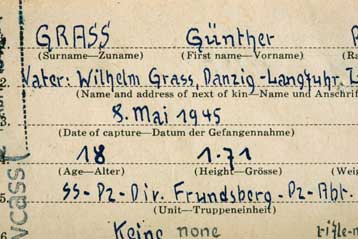 GRASS Günther
(Surname—Zuname) (First name—Vorname) (Ra
2. Vater: Wilhelm Grass, Danzig-Langfuhr,
(Name and address of next of kin—Name und Anschrif
3. 8. Mai 1945
(Date of capture—Datum der Gefangennahme)
4. 18 1.71
(Age—Alter) (Height—Grösse) (Wei
5. SS-Pz-Div. Frundsberg-Pz-Abt.
(Unit—Truppeneinheit)
6. Keine none rifle-m